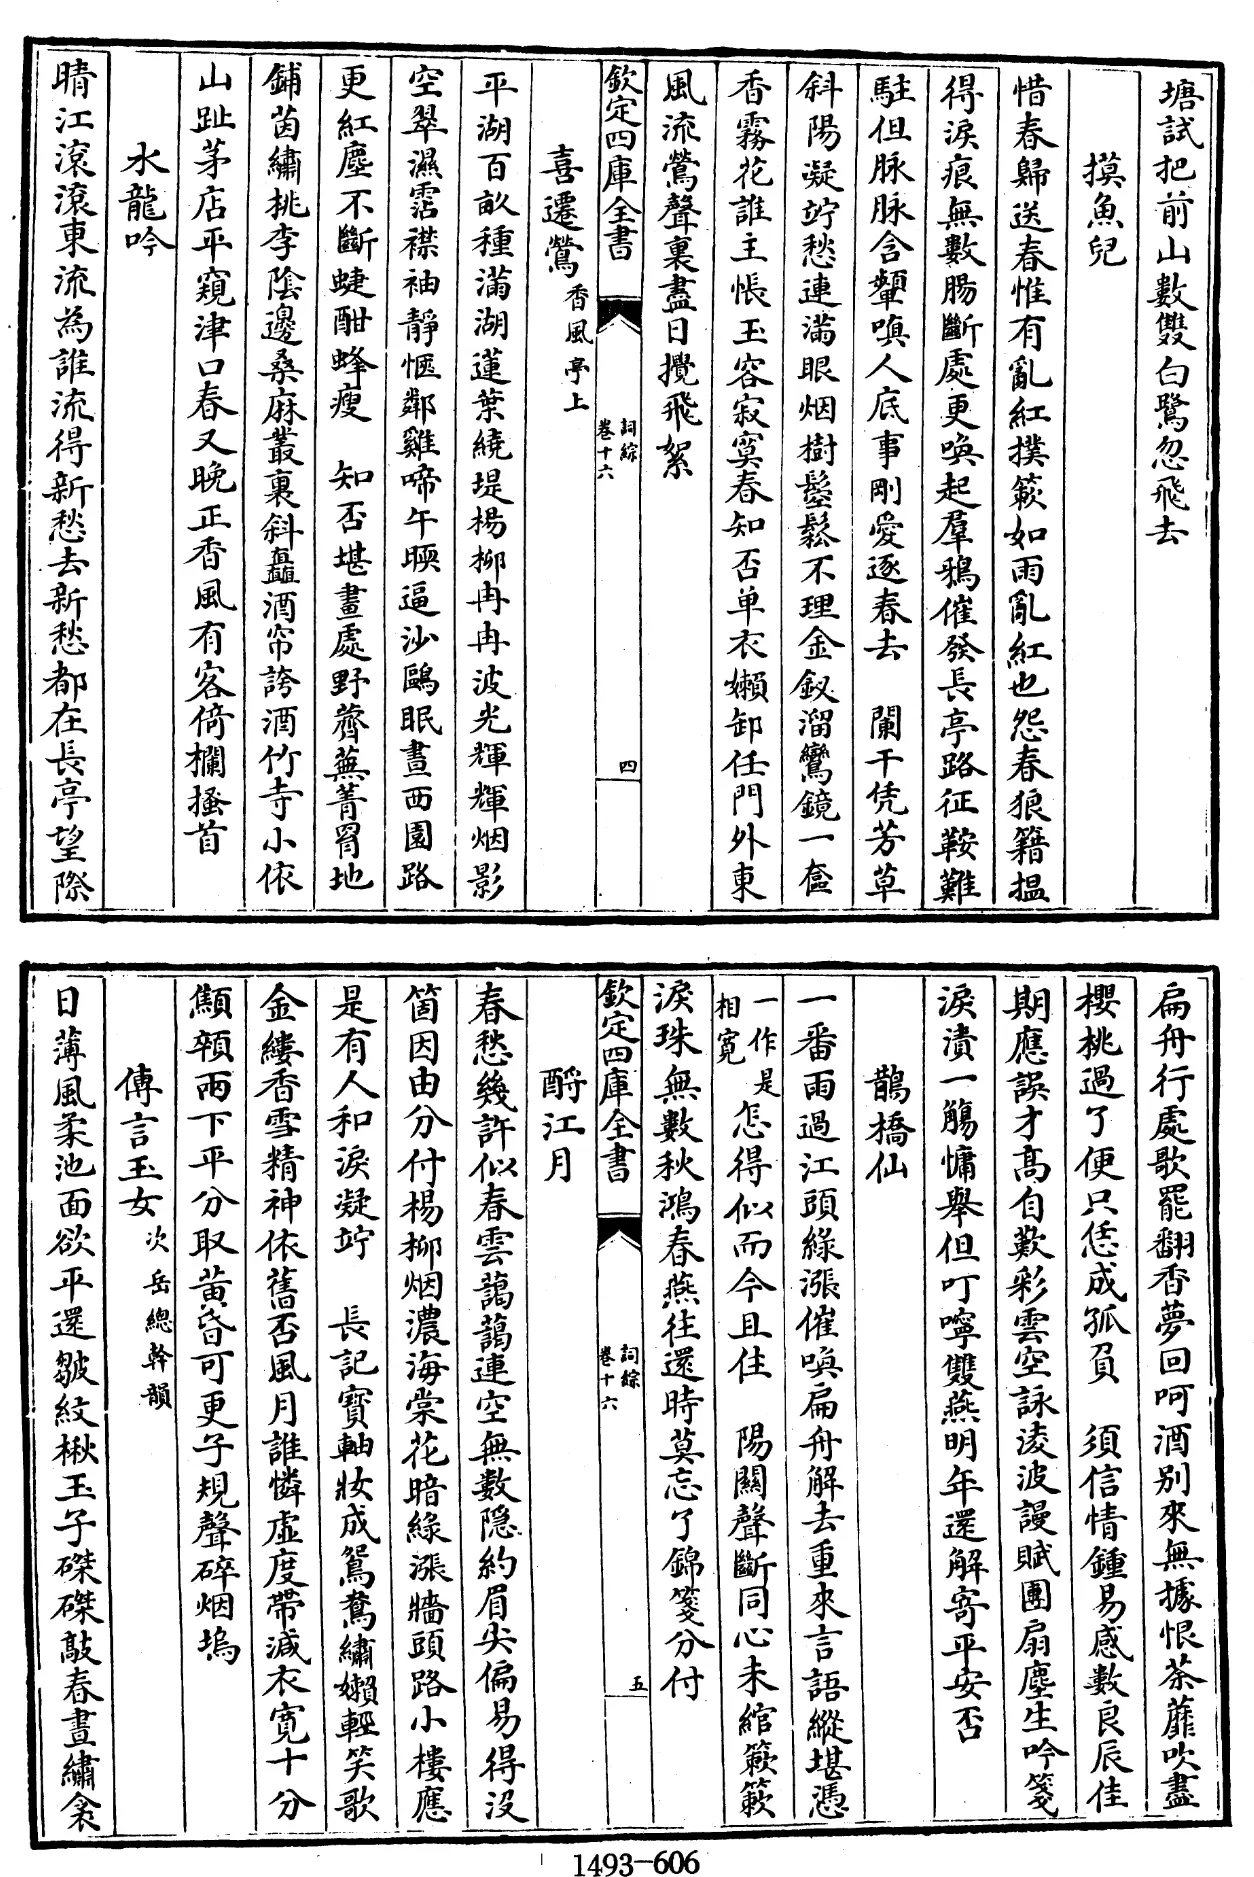 塘試把前山數雙白鷺忽飛去
摸魚兒
惜春歸送春惟有亂紅撲簌如雨亂紅也怨春狼籍搵
得淚痕無數腸斷處更喚起羣鴉催發長亭路征鞍難
駐但脉脉含顰嗔人底事剛愛逐春去　闌干凭芳草
斜陽凝竚愁連滿眼烟樹鬆鬆不理金釵溜鸞鏡一奩
香霧花誰主悵玉容寂寞春知否单衣嬾卸任門外東
風流鶯聲裏盡日攪飛絮
欽定四庫全書
詞綜
卷十六
四
喜遷鶯香風亭上
平湖百畝種滿湖蓮葉繞堤楊柳冉冉波光輝輝烟影
空翠濕霑襟袖靜愜鄰雞啼午暖逼沙鷗眠晝西園路
更紅塵不斷蜨酣蜂瘦　知否堪畫處野薺蕪菁罥地
鋪茵繡桃李陰邊桑麻叢裏斜矗酒帘誇酒竹寺小依
山趾茅店平窺津口春又晚正香風有客倚欄搔首
水龍吟
晴江滾滾東流為誰流得新愁去新愁都在長亭望際
扁舟行處歌罷翻香夢回呵酒別來無據恨荼蘼吹盡
櫻桃過了便只恁成孤負　須信情鍾易感數良辰佳
期應誤才髙自歎彩雲空詠淩波謾賦團扇塵生吟箋
淚漬一觴慵舉但叮嚀雙燕明年還解寄平安否
鵲橋仙
一番雨過江頭緑漲催喚扁舟解去重來言語縱堪憑
一作是
相寛
怎得似而今且住　陽關聲斷同心未綰簌簌
淚珠無數秋鴻春燕往還時莫忘了錦箋分付
欽定四庫全書
詞綜
卷十六
五
酹江月
春愁幾許似春雲藹藹連空無數隐約眉尖偏易得没
箇因由分付楊柳烟濃海棠花暗緑漲牆頭路小樓應
是有人和淚凝竚　長記寶軸妝成鴛鴦繡嬾輕笑歌
金縷香雪精神依舊否風月誰憐虛度帶減衣寛十分
顦顇兩下平分取黄昏可更子規聲碎烟塢
傳言玉女次岳總幹韻
日薄風柔池面欲平還皺紋楸玉子磔磔敲春晝繡衾
1493-606